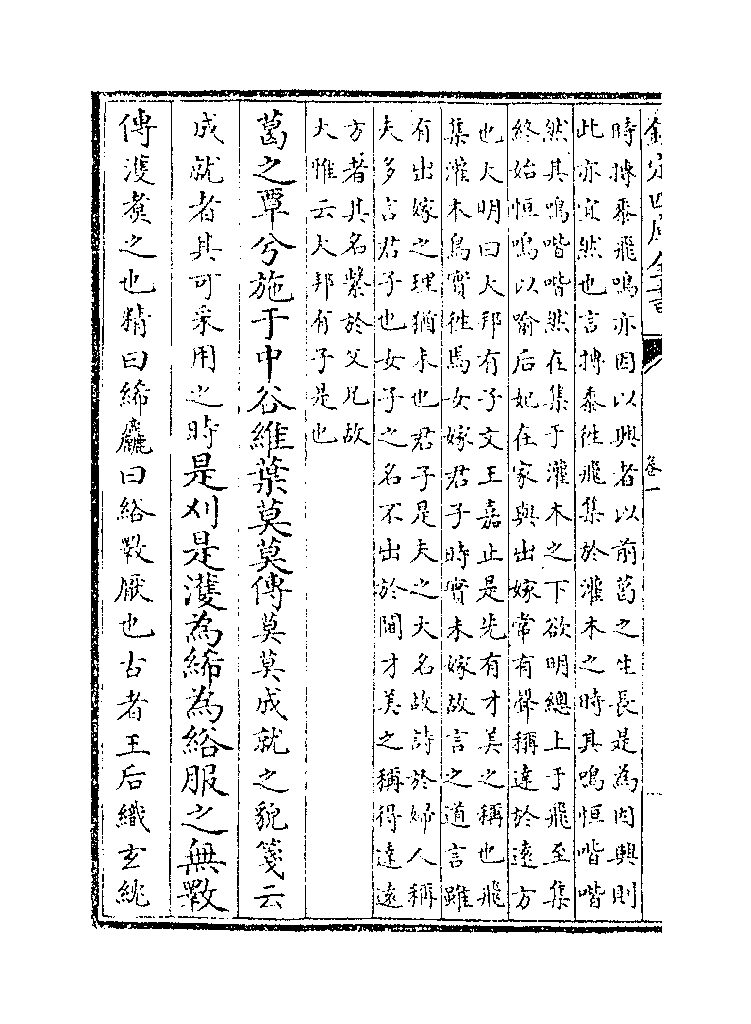 欽定四庫全書
卷一
時摶黍飛鳴亦因以興者以前葛之生長是為因興則
此亦宜然也言摶黍往飛集於灌木之時其鳴恒喈喈
然其鳴喈喈然在集于灌木之下欲明總上于飛至集
終始恒鳴以喻后妃在家與出嫁常有聲稱達於遠方
也大明曰大邦有子文王嘉止是先有才美之稱也飛
集灌木鳥實往焉女嫁君子時實未嫁故言之道言雖
有出嫁之理猶未也君子是夫之大名故詩於婦人稱
夫多言君子也女子之名不出於閫才美之稱得達遠
方者其名繫於父兄故
大雅云大邦有子是也
葛之覃兮施于中谷維葉莫莫傳莫莫成就之貌箋云
成就者其可采用之時是刈是濩為絺為綌服之無斁
傳濩煑之也精曰絺麤曰綌斁厭也古者王后織玄紞